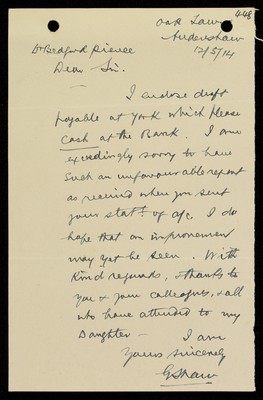 448
Oak Lawn
Audenshaw
12/5/14
Dr Bedford Pierce
Dear Sir.
I enclose draft
payable at York which please
cash at the Bank. I am
exceedingly sorry to have
such an unfavourable report
as received when you sent
your statt of a/c. I do
hope that an improvement
may yet be seen. With
kind regards, & thanks to
you & your colleagues, & all
who have attended to my
Daughter —
I am
Yours sincerely
G Shaw